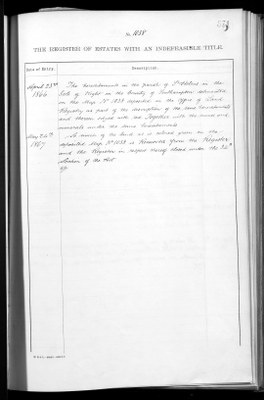 No. 1038
THE REGISTER OF ESTATES WITH AN INDEFEASIBLE TITLE.
Date of Entry.
Description.
April 23rd
1866
The hereditament in the parish of St Helens in the
Isle of Wight in the County of Southampton delineated
on the Map No. 1038 deposited in the Office of Land
Registry as part of the description of the same hereditaments
and thereon edged with red Together with the mines and
minerals under the same hereditaments
May 24th
1867
of the land as is on the
deposited Map No. 1038 is Removed from the Register
and the Register in respect thereof closed under the 34th
Section of the Act